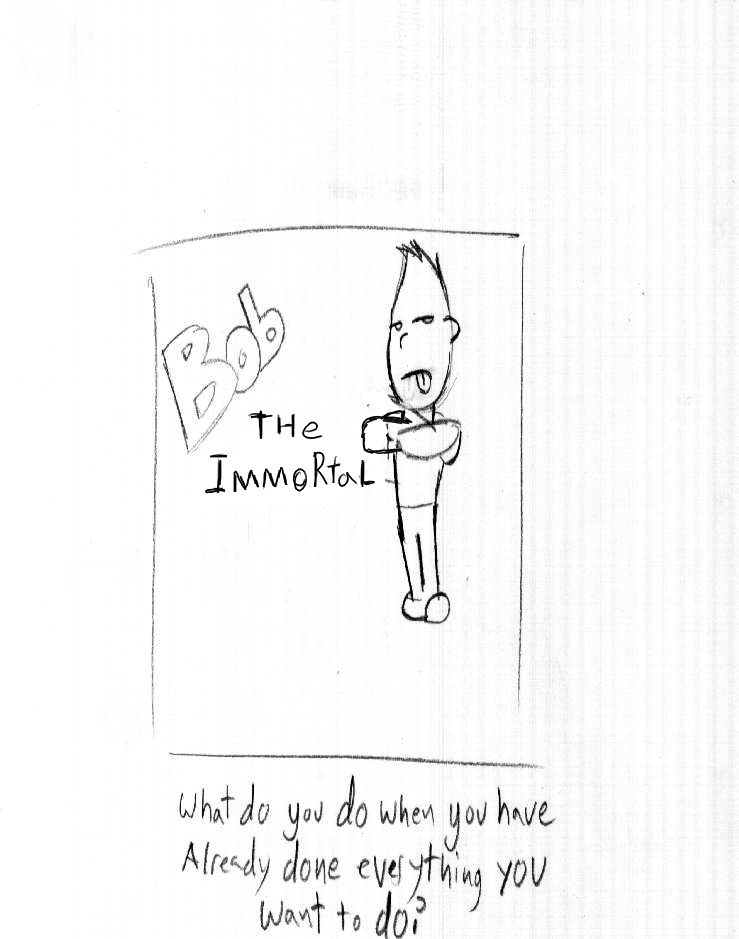 Bob
THe
IMMORtaL
What do you do when you have
Already done everything you
want to do?